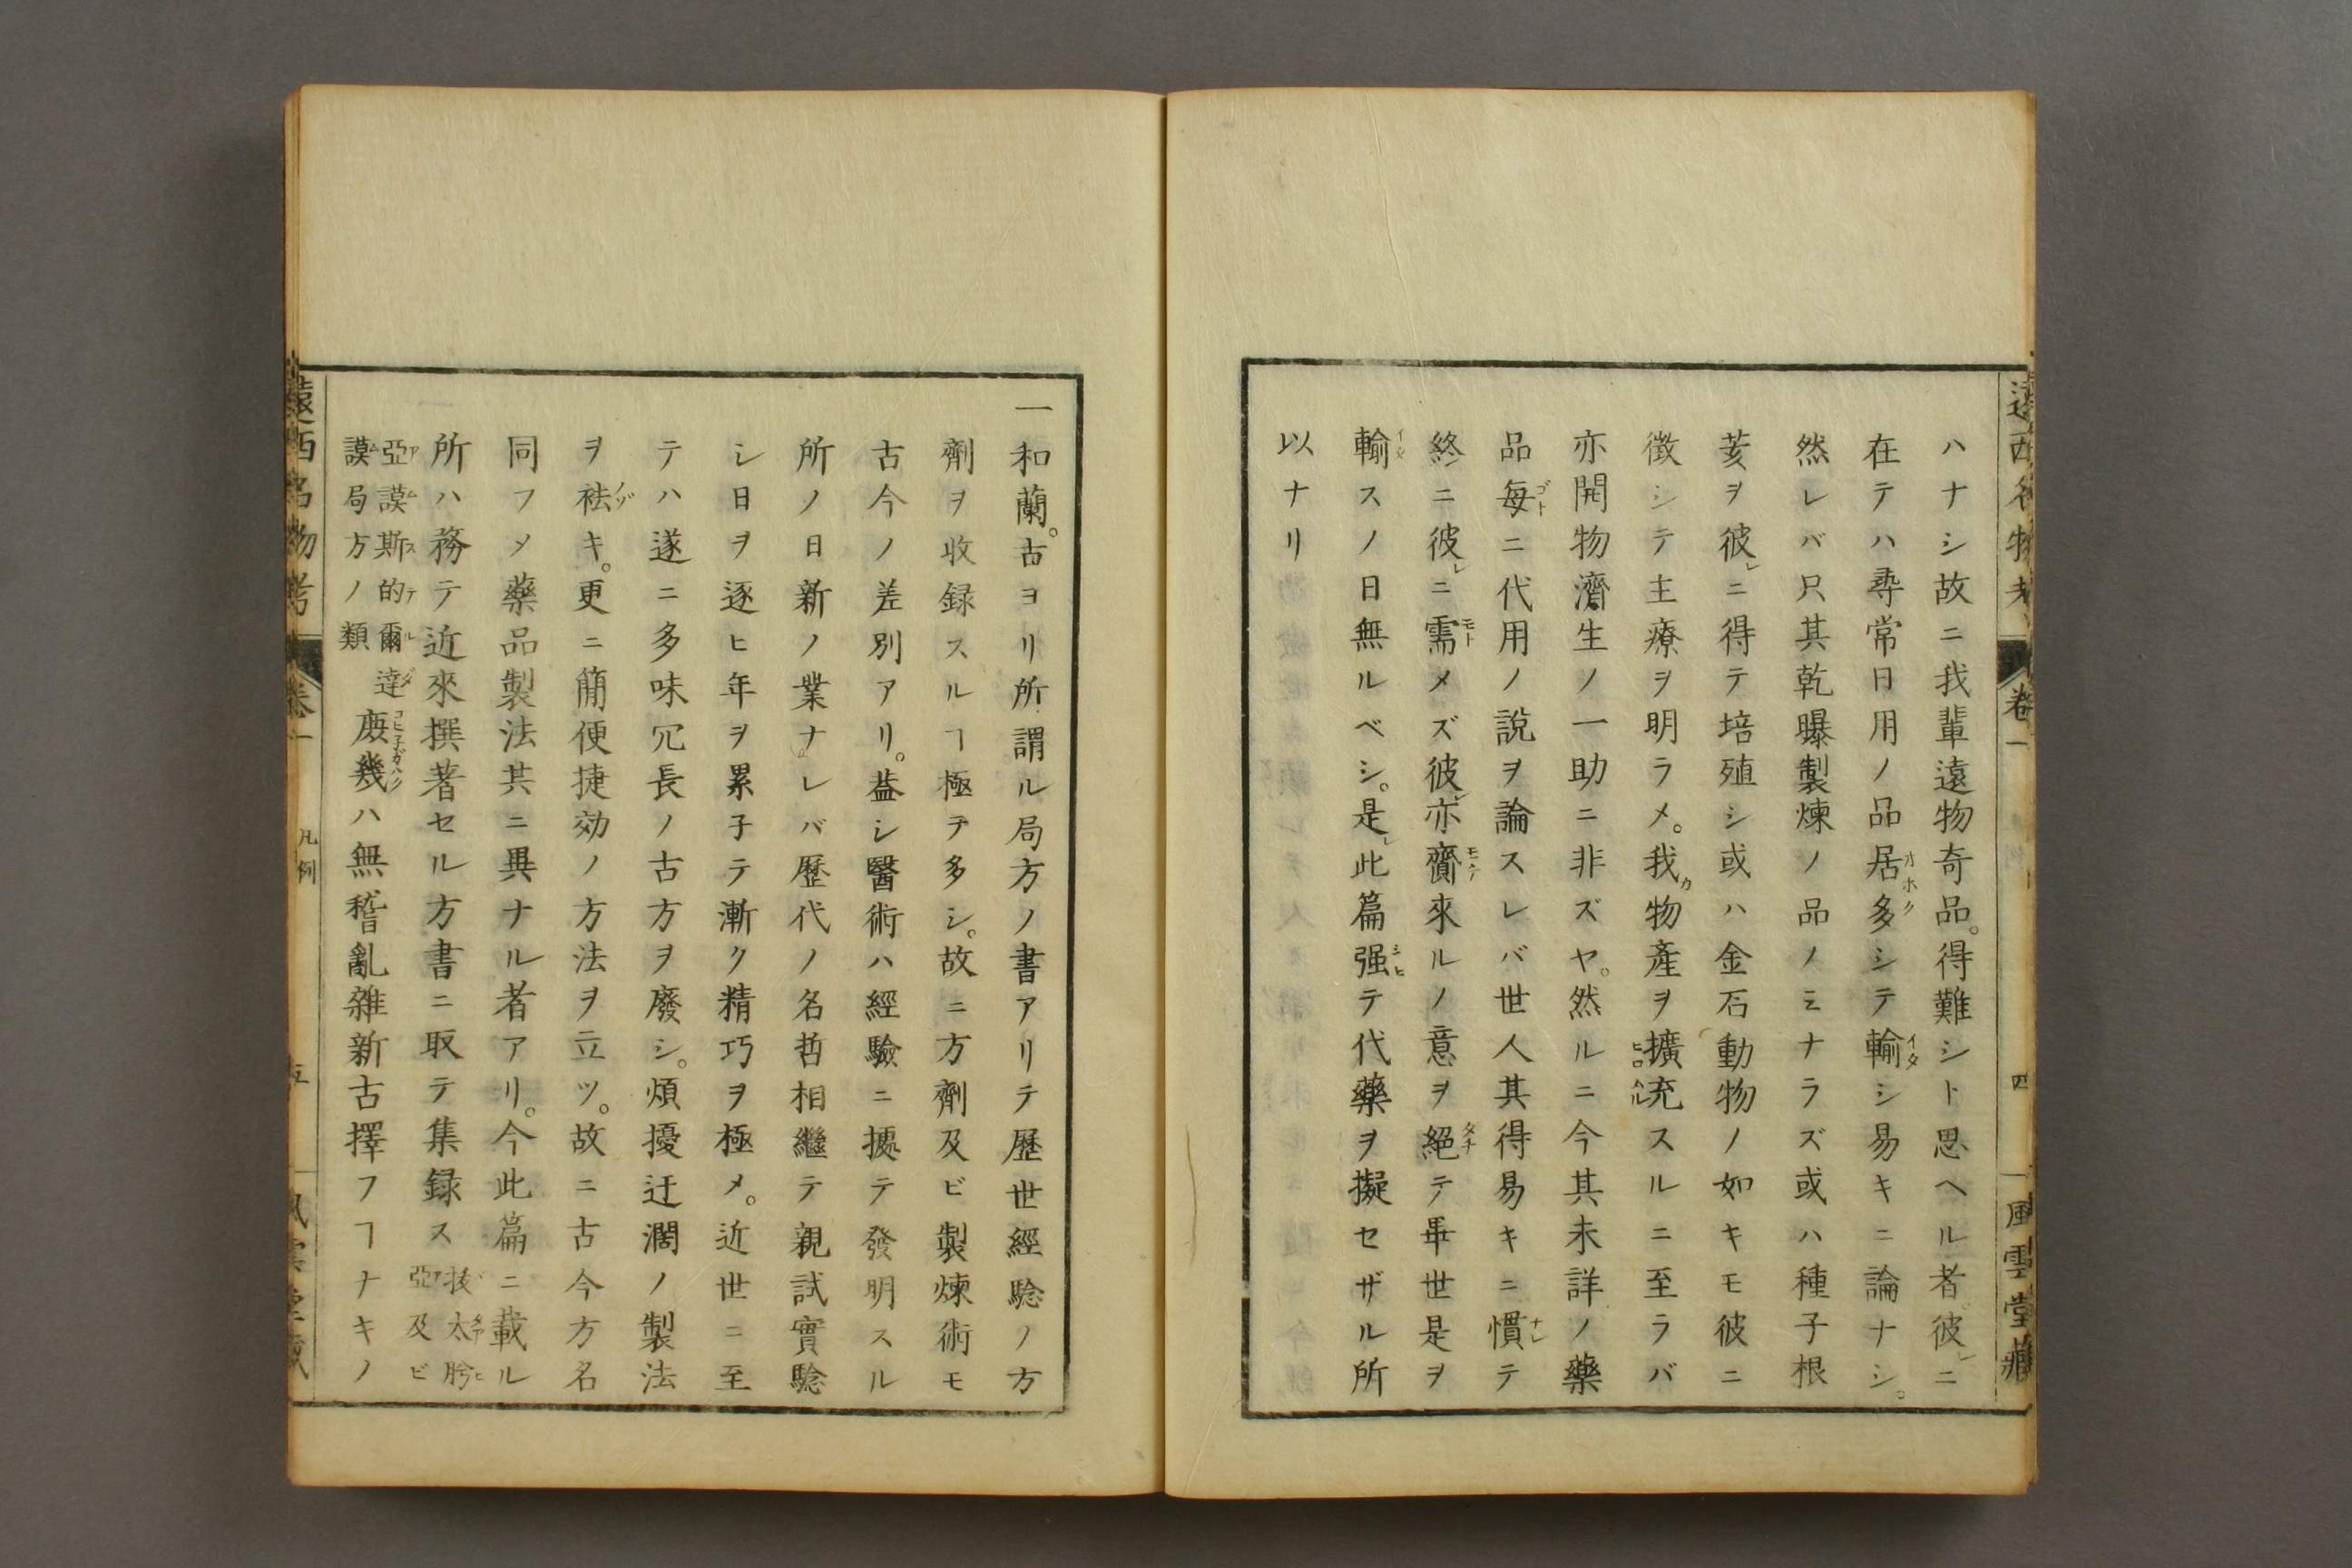 ハナシ故ニ我輩遠物奇品。得難シト思ヘル者彼レニ
在テハ尋常日用ノ品居多シテ輸シ易キニ論ナシ。
然レバ只其乾曝製煉ノ品ノミナラズ或ハ種子根
荄ヲ彼レニ得テ培殖シ或ハ金石動物ノ如キモ彼ニ
徴シテ主療ヲ明ラメ。我カ物產ヲ擴充スルニ至ラバ
亦開物濟生ノ一助ニ非ズヤ。然ルニ今其未詳ノ藥
品每ニ代用ノ說ヲ論スレバ世人其得易キニ慣テ
終ニ彼レニ需メズ彼レ亦齎來ルノ意ヲ絕テ畢世是ヲ
輸スノ日無ルベシ。是レ此篇强テ代藥ヲ擬セザル所
以ナリ
遠西名物考 卷一 四 風雲堂藏
一和蘭。古ヨリ所謂ル局方ノ書アリテ歷世經驗ノ方
劑ヲ收録スルヿ極テ多シ。故ニ方劑及ビ製煉術モ
古今ノ差別アリ。葢シ醫術ハ經驗ニ據テ發明スル
所ノ日新ノ業ナレバ歷代ノ名哲相繼テ親試實驗
シ日ヲ逐ヒ年ヲ累子テ漸ク精巧ヲ極メ。近世ニ至
テハ遂ニ多味冗長ノ古方ヲ廢シ。煩擾迂濶ノ製法
ヲ祛キ。更ニ簡便捷効ノ方法ヲ立ツ。故ニ古今方名
同フメ藥品製法其ニ異ナル者アリ。今此篇ニ載ル
所ハ務テ近來撰著セル方書ニ取テ集録ス 拔太肹亞及ビ
亞謨斯的爾達謨局方ノ類 庻幾ハ無稽亂雜新古擇フヿナキノ
遠西名物考 卷一 凡例 五 風雲堂藏